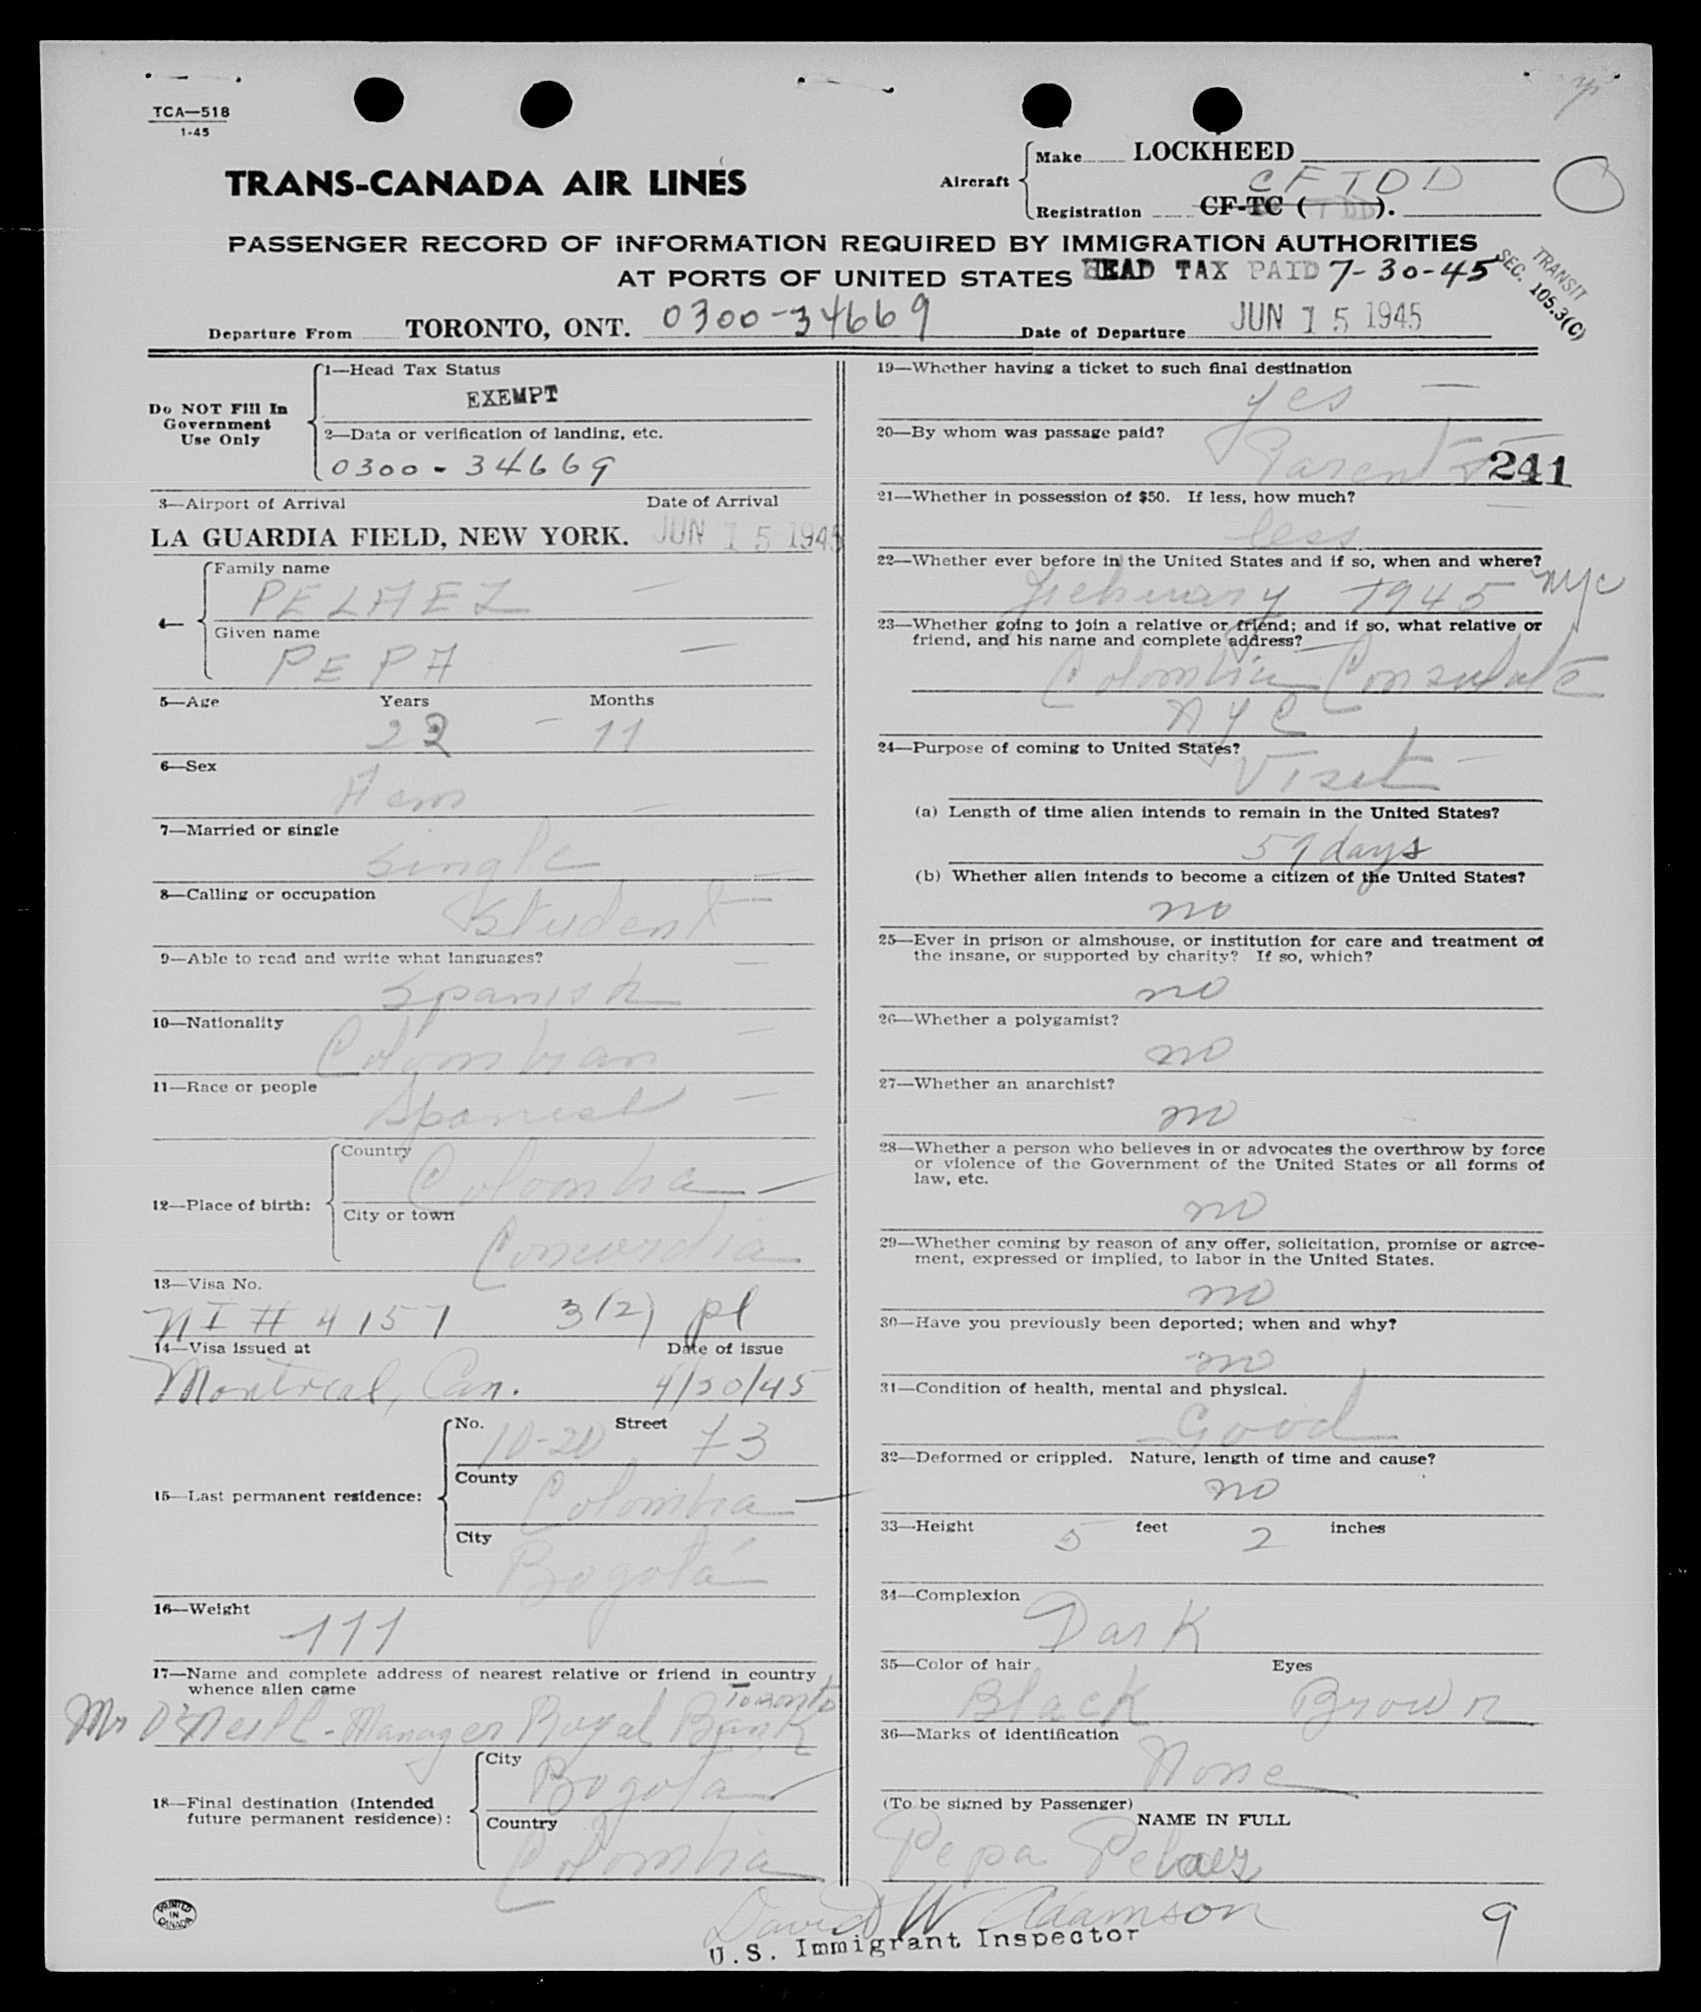 TCA—518
1-45
TRANS-CANADA AIR LINES
Aircraft
Make LOCKHEED
CFTDD
Registration CF-TC (TDD).
PASSENGER RECORD OF INFORMATION REQUIRED BY IMMIGRATION AUTHORITIES
AT PORTS OF UNITED STATES HEAD TAX PAID 7-30-45
TRANSIT
SEC. 105.3(C)
Departure From TORONTO, ONT. 0300-34669 Date of Departure JUN 15 1945
Do NOT Fill In
Government
Use Only
1—Head Tax Status
EXEMPT
2—Data or verification of landing, etc.
0300-34669
3—Airport of Arrival Date of Arrival
LA GUARDIA FIELD, NEW YORK. JUN 15 1945
4—
Family name
PELAEZ
Given name
PEPA
5—Age Years Months
22 11
6—Sex
Fem
7—Married or single
Single
8—Calling or occupation
Student
9—Able to read and write what languages?
Spanish
10—Nationality
Colombian
11—Race or people
Spanish
12—Place of birth:
Country
Colombia
City or town
Concordia
13—Visa No.
NI # 4157 3(2) pl
14—Visa issued at Date of issue
Montreal, Can. 4/20/45
15—Last permanent residence:
No. 10-20 Street 73
County
Colombia
City
Bogotá
16—Weight
111
17—Name and complete address of nearest relative or friend in country
whence alien came
Toronto
Mr O'Neill - Manager Royal Bank
18—Final destination (Intended
future permanent residence):
City
Bogotá
Country
Colombia
19—Whether having a ticket to such final destination
yes
20—By whom was passage paid?
Parents
241
21—Whether in possession of $50. If less, how much?
less
22—Whether ever before in the United States and if so, when and where?
February 1945 NYC
23—Whether going to join a relative or friend; and if so, what relative or
friend, and his name and complete address?
Colombia Consulate
NYC
24—Purpose of coming to United States?
Visit
(a) Length of time alien intends to remain in the United States?
59 days
(b) Whether alien intends to become a citizen of the United States?
no
25—Ever in prison or almshouse, or institution for care and treatment of
the insane, or supported by charity? If so, which?
no
26—Whether a polygamist?
no
27—Whether an anarchist?
no
28—Whether a person who believes in or advocates the overthrow by force
or violence of the Government of the United States or all forms of
law, etc.
no
29—Whether coming by reason of any offer, solicitation, promise or agree-
ment, expressed or implied, to labor in the United States.
no
30—Have you previously been deported; when and why?
no
31—Condition of health, mental and physical.
Good
32—Deformed or crippled. Nature, length of time and cause?
no
33—Height 5 feet 2 inches
34—Complexion
Dark
35—Color of hair Eyes
Black Brown
36—Marks of identification
None
(To be signed by Passenger)
NAME IN FULL
Pepa Pelaez
David W Adamson
U.S. Immigrant Inspector
9
PRINTED
IN
CANADA